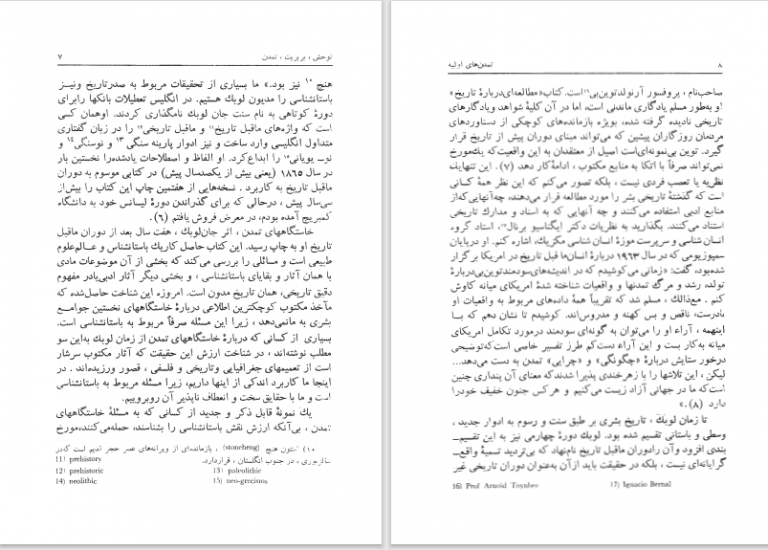 توحش ، بربریت ، تمدن
۷
هنج ۱۰ نیز بود.» ما بسیاری از تحقیقات مربوط به صدر تاریخ و نیز
باستانشناسی را مدیون لوبك هستیم. در انگلیس تعطیلات بانکها را برای
دورهٔ کوتاهی به نام سنت جان لوبك نامگذاری کردند. او همان کسی
است که واژه‌های ماقبل تاریخ۱۱ و ماقبل تاریخی۱۲ را در زبان گفتاری
متداول انگلیسی وارد ساخت و نیز ادوار پارینه سنگی ۱۳ و نوسنگی۱۴ و
نوب یونانی۱۵ را ابداع کرد. او الفاظ و اصطلاحات یادشده را نخستین بار
در سال ۱۸۶۵ (یعنی بیش از یکصدسال پیش) در کتابی موسوم به دوران
ماقبل تاریخ به کاربرد . نسخه‌هایی از هفتمین چاپ این کتاب را بیش از
سی‌سال پیش ، درحالی که برای گذراندن دورهٔ لیسانس خود به دانشگاه
کمبریج آمده بودم، در معرض فروش یافتم (۶) .
خاستگاههای تمدن ، اثر جان‌لوبك ، هفت سال بعد از دوران ماقبل
تاریخ او به چاپ رسید. این کتاب حاصل کار یك باستانشناس و عالم‌علوم
طبیعی است و مسائلی را بررسی می‌کند که بخشی از آن موضوعات مادی
با همان آثار و بقایای باستانشناسی ، و بخشی دیگر آثار ادبی‌با‌در مفهوم
دقیق تاریخی، همان تاریخ مدون است. امروزه این شناخت حاصل‌شده که
مآخذ مکتوب کوچکترین اطلاعی دربارهٔ خاستگاههای نخستین جوامـع
بشری به مانمی‌دهد ، زیرا این مسئله صرفاً مربوط به باستانشناسی است.
بسیاری از کسانی که دربارهٔ خاستگاههای تمدن از زمان لوبك به‌این سو
مطلب نوشته‌اند ، در شناخت ارزش این حقیقت که آثار مکتوب سرشار
است از تعمیمهای جغرافیایی و تاریخی و فلسفی ، قصور ورزیده‌اند . در
اینجا ما کاربرد اندکی از اینها داریم، زیرا مسئله مربوط به باستانشناسی
است و ما با حقایق سخت و انعطاف ناپذیر آن روبروییم.
یك نمونهٔ قابل ذکر و جدید از کسانی که به مسئلهٔ خاستگاههای
تمدن ، بی‌آنکه ارزش نقش باستانشناسی را بشناسند، حمله‌می‌کنند،مورخ
۱۰) استون هنج (stoneheng) ، بازمانده‌ای از ویرانه‌های عصر حجر قدیم است که‌در
سالزبوری ، در جنوب انگلستان ، قراردارد.
11) prehistory
12) prehistoric 13) paleolithic
14) neolithic 15) neo-grecisms
تمدن‌های اولیه
۸
صاحب‌نام ، پروفسور آرنولدتوین‌بی۱۶ است. کتاب«مطالعه‌ای دربارهٔ تاریخ»
او به‌طور مسلم یادگاری ماندنی است، اما در آن کلیهٔ شواهد و یادگارهای
تاریخی نادیده گرفته شده، بویژه بازمانده‌های کوچکی از دستاوردهای
مردمان روزگاران پیشین که می‌تواند مبنای دوران پیش از تاریخ قرار
گیرد. توین بی‌نمونه‌ای‌است اصیل از معتقدان به این واقعیت‌که یك‌مورخ
نمی‌تواند صرفاً با اتکا به منابع مکتوب ، ادامهٔ‌کار دهد (۷) . این تنهایك
نظریه یا تعصب فردی نیست ، بلکه تصور می‌کنم که این نظر همهٔ کسانی
است که گذشتهٔ تاریخی بشر را مورد مطالعه قرار می‌دهند، چه‌آنهایی‌که‌از
منابع ادبی استفاده می‌کنند و چه آنهایی که به اسناد و مدارك تاریخی
استناد می‌کنند. بگذارید به نظریات دکتر ایگناسیو برنال۱۷، استاد گروه
انسان شناسی و سرپرست موزهٔ انسان شناسی مکزیك، اشاره کنم. او درپایان
سمپوزیومی که در سال ۱۹۶۳ دربارهٔ انسان‌ها قبل تاریخ در امریکا برگزار
شده‌بود، گفت: «زمانی می‌کوشیدم که در اندیشه‌های‌سودمندتوین‌بی‌دربارهٔ
تولد، رشد و مرگ تمدنها و واقعیات شناخته شدهٔ امریکای میانه کاوش
کنم . مع‌ذالك ، مسلم شد که تقریباً همهٔ داده‌های مربوط به واقعیات او
نادرست، ناقص و بس کهنه و مدروس‌اند. کوشیدم تا نشان دهم که بـا
اینهمه ، آراء او را می‌توان به گونه‌ای سودمند درمورد تکامل امریکای
میانه به‌کار بست و این آراء دست‌کم طرز تفسیر خاصی است‌که‌توضیحی
درخور ستایش دربارهٔ «چگونگی» و «چرایی» تمدن به دست می‌دهد...
لیکن ، این تلاشها را با زهرخندی پذیرا شدند‌که معنای آن پنداری چنین
است‌که ما در جهانی آزاد زیست می‌کنیم و هرکس جنون خفیف خود را
دارد (۸).»
تا زمان لوبك ، تاریخ بشری بر طبق سنت و رسوم به ادوار جدید ،
وسطی و باستانی تقسیم شده بود. لوبك دورهٔ چهارمی نیز به این تقسیم‌ـ
بندی افزود و آن رادوران ماقبل تاریخ نام‌نهاد که بی‌تردید تسمیهٔ واقع‌ـ
گرایانه‌ای نیست ، بلکه در حقیقت باید از آن به‌عنوان دوران تاریخی غیر
16) Prof Arnold Toynbee 17) Ignacio Bernal